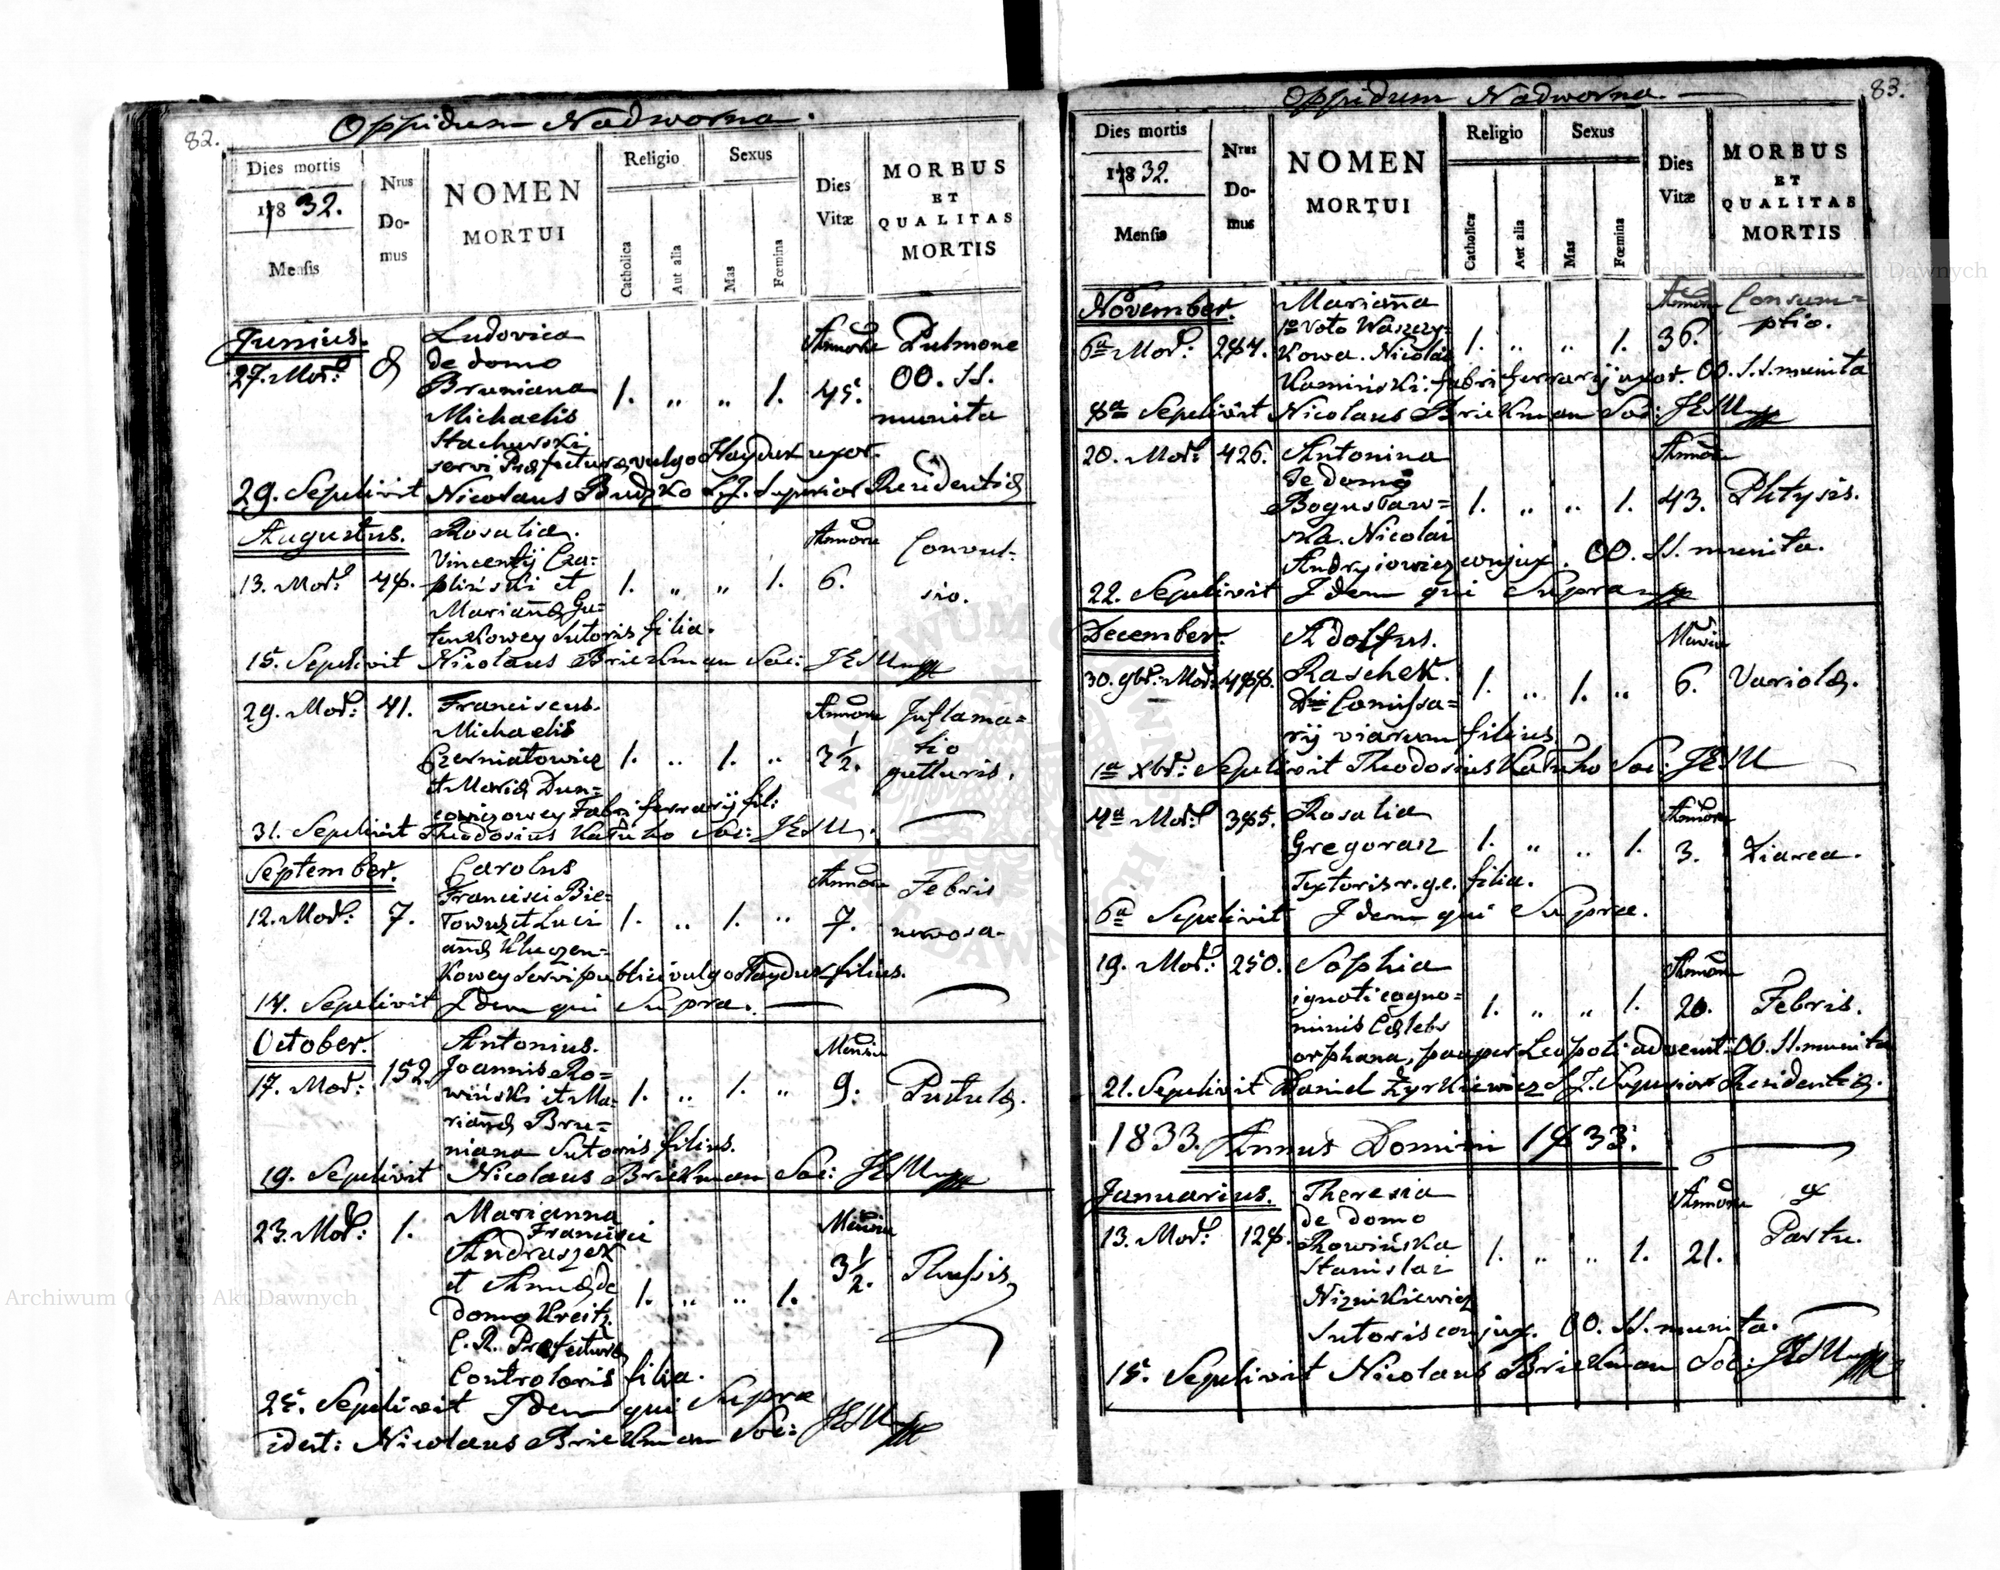 82.
Oppidum Nadworna.
Dies mortis
178 32.
Mensis
Nrus
Do-
mus
NOMEN
MORTUI
Religio
Catholica
Aut alia
Sexus
Mas
Fœmina
Dies
Vitæ
MORBUS
ET
QUALITAS
MORTIS
Junius.
27. Mort: 8
Ludovica
de domo
Bruniana
Michaelis
Stachurski
servi Præfecturæ vulgo Hayduk uxor.
1. „ „ 1.
Annorū
45.
Pulmone
OO. SS.
munita
29. Sepelivit Nicolaus Budzko S.J. Superior Residentiæ
Augustus.
13. Mort: 48.
Rosalia.
Vincentij Cza-
pliński et
Mariannæ Gu-
tenkowey Sutoris filia.
1. „ „ 1.
Annorū
6.
Convul-
sio.
15. Sepelivit Nicolaus Brickman Soc: JESU
29. Mort: 41.
Franciscus.
Michaelis
Czerniatowicz
et Mariæ Dun-
cowiczowey Fabri ferrarij fil:
1. „ 1. „
Annorū
3 1/2.
Inflama-
tio
gutturis.
31. Sepelivit Theodosius Soc: JESU.
September.
12. Mort: 7.
Carolus
Francisci Bie-
Towuz et Luci-
annæ Kluczen-
kowey Servi publici vulgo Hayduk filius.
1. „ 1. „
Annorū
7.
Febris
nervosa.
14. Sepelivit Idem qui Supra.
October.
17. Mort: 152.
Antonius.
Joannis Ro-
wiński et Ma-
riannæ Bru-
niana Sutoris filius.
1. „ 1. „
Mensiū
9.
Pustulæ.
19. Sepelivit Nicolaus Brickman Soc: JESU
23. Mort: 1.
Marianna
Francisci
Andraszek
et Annæ de
domo Kreitz.
C. R. Præfecturæ
Controloris filia.
1. „ „ 1.
Mensiū
3 1/2.
Tussis
25. Sepelivit Idem qui Supra
idest: Nicolaus Brickman Soc: JESU
83.
Oppidum Nadworna.
Dies mortis
178 32.
Mensis
Nrus
Do-
mus
NOMEN
MORTUI
Religio
Catholica
Aut alia
Sexus
Mas
Fœmina
Dies
Vitæ
MORBUS
ET
QUALITAS
MORTIS
November.
6ta Mort: 287.
Marianna
1o Voto Waszczy-
kowa. Nicolai
Kamiński. fabri ferrarij uxor. OO. S.S. munita
1. „ „ 1.
Annorū
36.
Consum-
ptio.
8va Sepelivit Nicolaus Brickman Soc: JESU
20. Mort: 426.
Antonina
de domo
Bogusław-
ska. Nicolai
Andryiowicz conjux. OO. SS. munita.
1. „ „ 1.
Annorū
43.
Phtysis.
22. Sepelivit Idem qui Supra
December.
30. 9br: Mort: 488.
Adolfus.
Raschek.
Dni Comissa-
rij viarum filius.
1. „ 1. „
Mensiū
6.
Variolæ.
1a Xbr: Sepelivit Theodosius Soc: JESU
4ta Mort: 385.
Rosalia
Gregorasz
Textoris r. g. c. filia.
1. „ „ 1.
Annorū
3.
Diarea.
6ta Sepelivit Idem qui Supra.
19. Mort: 250.
Sophia
ignoti cogno-
minis Cælebs
orphana, pauper Leopoli advenit. OO. SS. munita
1. „ „ 1.
Annorū
20.
Febris.
21. Sepelivit Daniel Żyrkiewicz S.J. Superior Residentiæ.
1833. Annus Domini 1833.
Januarius.
13. Mort: 128.
Theresia
de domo
Rowińska
Stanislai
Niznikiewicz
Sutoris conjux. OO. SS. munita.
1. „ „ 1.
Annorū
21.
ex
Partu.
15. Sepelivit Nicolaus Brickman Soc: JESU
Archiwum Główne Akt Dawnych
Archiwum Główne Akt Dawnych
ARCHIWUM GŁÓWNE AKT DAWNYCH